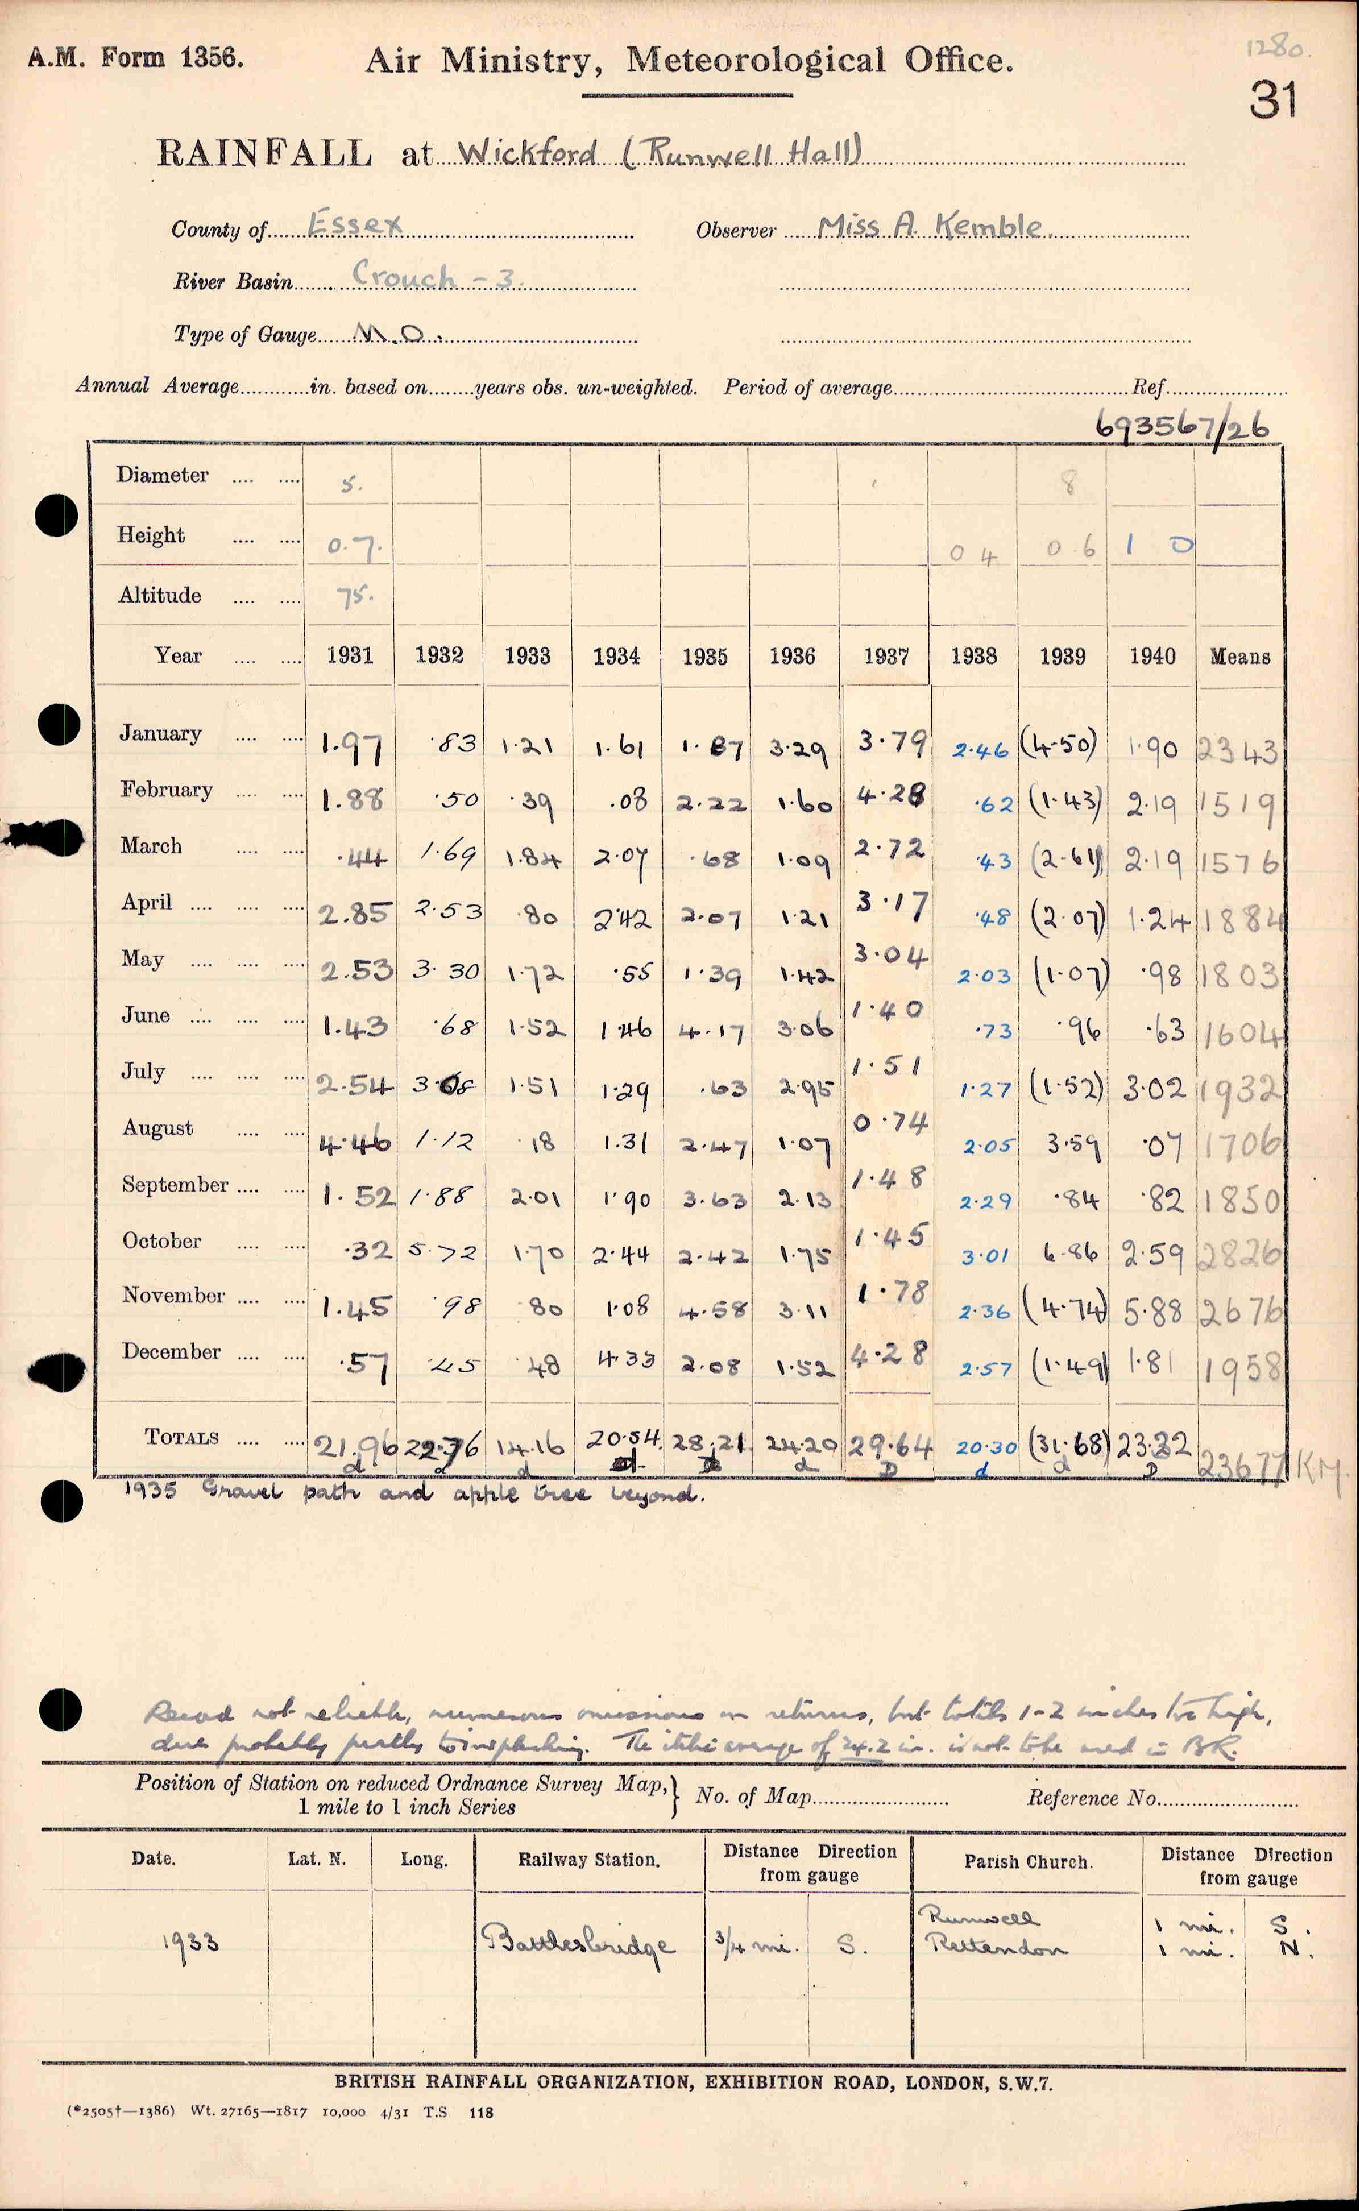 1280.
A.M. Form 1356. Air Ministry, Meteorological Office.
31
RAINFALL at Wickford (Runwell Hall)
County of Essex Observer Miss A. Kemble
River Basin Crouch - 3.
Type of Gauge M.O.
Annual Average in. based on years obs. un-weighted. Period of average Ref.
693567/26
Diameter 5. 8
Height 0.7. 0 4 0 6 1 0
Altitude 75.
Year 1931 1932 1933 1934 1935 1936 1937 1938 1939 1940 Means
January 1.97 .83 1.21 1.61 1.87 3.29 3.79 2.46 (4.50) 1.90 2343
February 1.88 .50 .39 .08 2.22 1.60 4.28 .62 (1.43) 2.19 1519
March .44 1.69 1.84 2.07 .68 1.09 2.72 .43 (2.61) 2.19 1576
April 2.85 2.53 .80 2.42 2.07 1.21 3.17 .48 (2.07) 1.24 1884
May 2.53 3.30 1.72 .55 1.39 1.42 3.04 2.03 (1.07) .98 1803
June 1.43 .68 1.52 1.46 4.17 3.06 1.40 .73 .96 .63 1604
July 2.54 3.08 1.51 1.29 .63 2.95 1.51 1.27 (1.52) 3.02 1932
August 4.46 1.12 .18 1.31 2.47 1.07 0.74 2.05 3.59 .07 1706
September 1.52 1.88 2.01 1.90 3.63 2.13 1.48 2.29 .84 .82 1850
October .32 5.72 1.70 2.44 2.42 1.75 1.45 3.01 6.86 2.59 2826
November 1.45 .98 .80 1.08 4.58 3.11 1.78 2.36 (4.74) 5.88 2676
December .57 .45 .48 4.33 2.08 1.52 4.28 2.57 (1.49) 1.81 1958
TOTALS 21.96 22.76 14.16 20.54 28.21 24.20 29.64 20.30 (31.68) 23.32 23677 KM.
d d d d d D d d D
1935 Gravel path and apple tree beyond.
Record not reliable, numerous omissions in returns, but totals 1-2 inches too high,
due probably partly to insplashing. The average of 24.2 in. is not to be used in BR.
Position of Station on reduced Ordnance Survey Map, } No. of Map Reference No.
1 mile to 1 inch Series
Date. Lat. N. Long. Railway Station. Distance Direction from gauge Parish Church. Distance Direction from gauge
Runwell 1 mi. S.
1933 Battlesbridge 3/4 mi. S. Rettendon 1 mi. N.
BRITISH RAINFALL ORGANIZATION, EXHIBITION ROAD, LONDON, S.W.7.
(*2505†—1386) Wt. 27165—1817 10,000 4/31 T.S 118